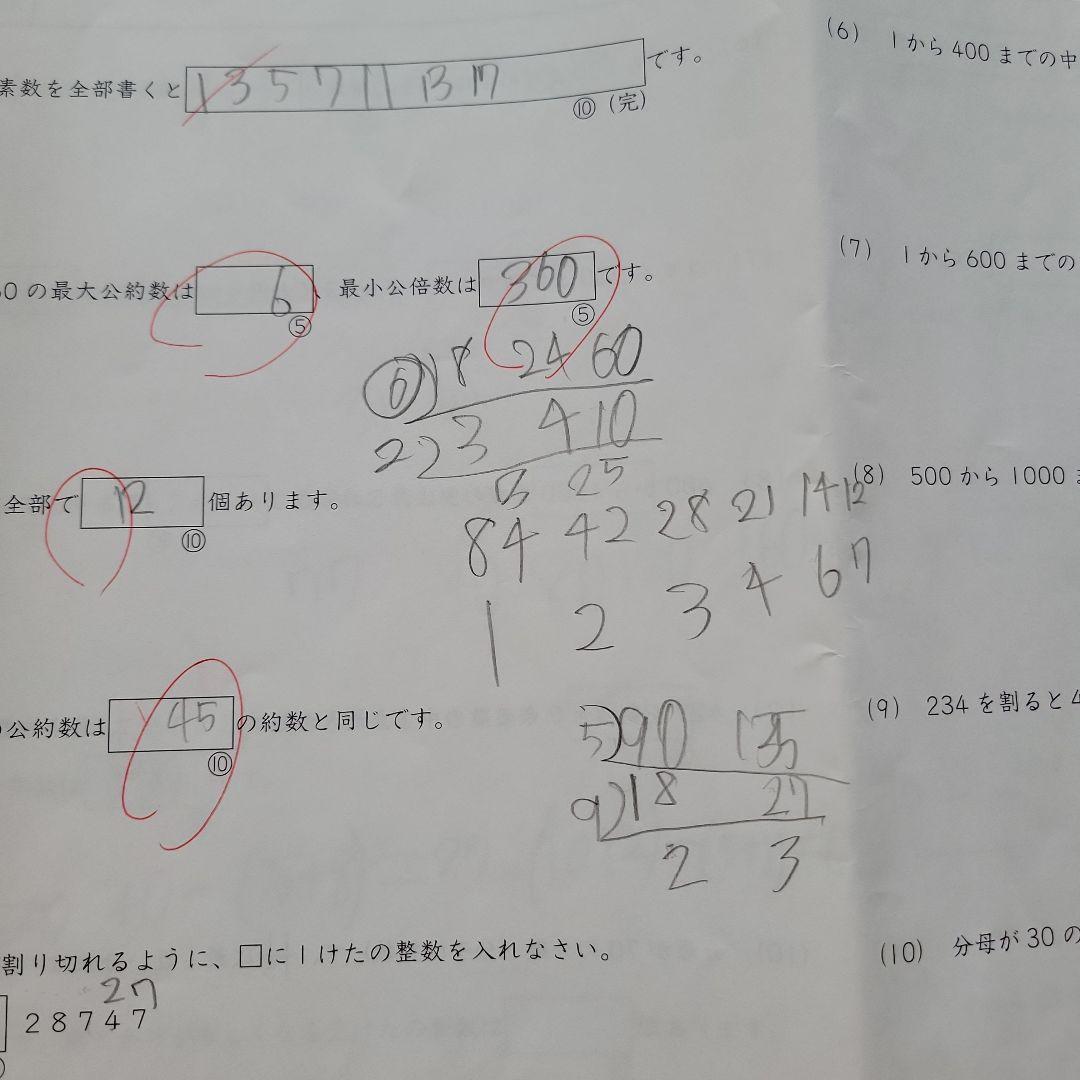 素数を全部書くと 1 3 5 7 11 13 17 です。
⑩ (完)
0 の最大公約数は 6 、最小公倍数は 360 です。
⑤ ⑤
6) 18 24 60
2) 3 4 10
3 2 5
全部で 12 個あります。
⑩
84 42 28 21 14 12
1 2 3 4 6 7
公約数は 45 の約数と同じです。
⑩
5) 90 135
9) 18 27
2 3
割り切れるように、□に1けたの整数を入れなさい。
27
28747
(6) 1から400までの中
(7) 1から600までの
(8) 500から1000
(9) 234を割ると4
(10) 分母が30の